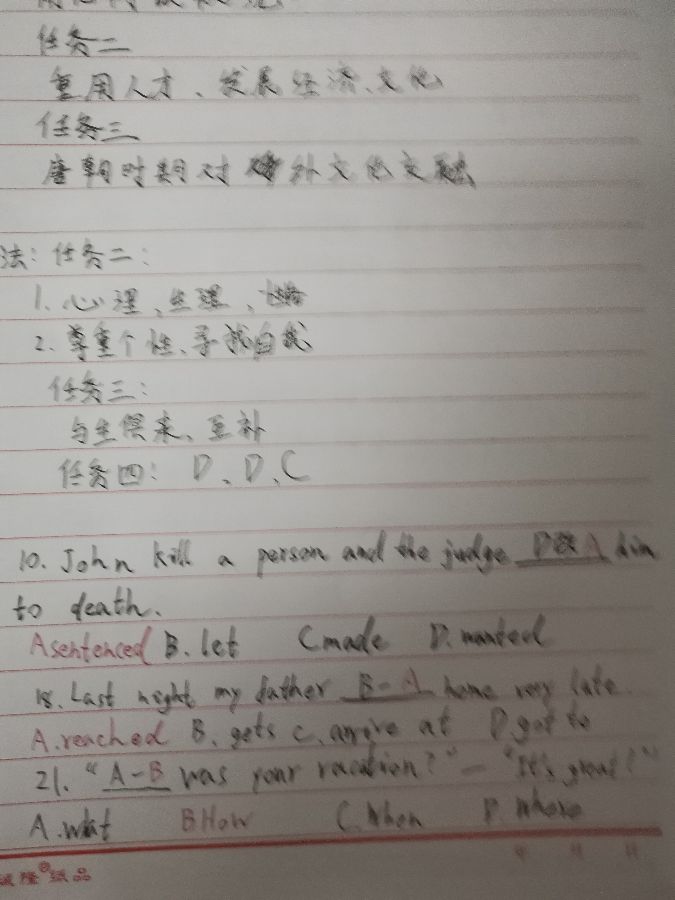 任务二
重用人才、发展经济、文化
任务三
唐朝时期对外文化交融
法: 任务二:
1. 心理、生理、
2. 尊重个性、寻找自我
任务三:
与生俱来、互补
任务四: D、D、C
10. John kill a person and the judge A him
to death.
A sentenced B. let C made D. wanted
18. Last night my father B-A home very late.
A. reached B. gets C. arrive at D got to
21. "A-B was your vacation?" — "It's great!"
A. what B How C. When D. where
诚隆®纸品